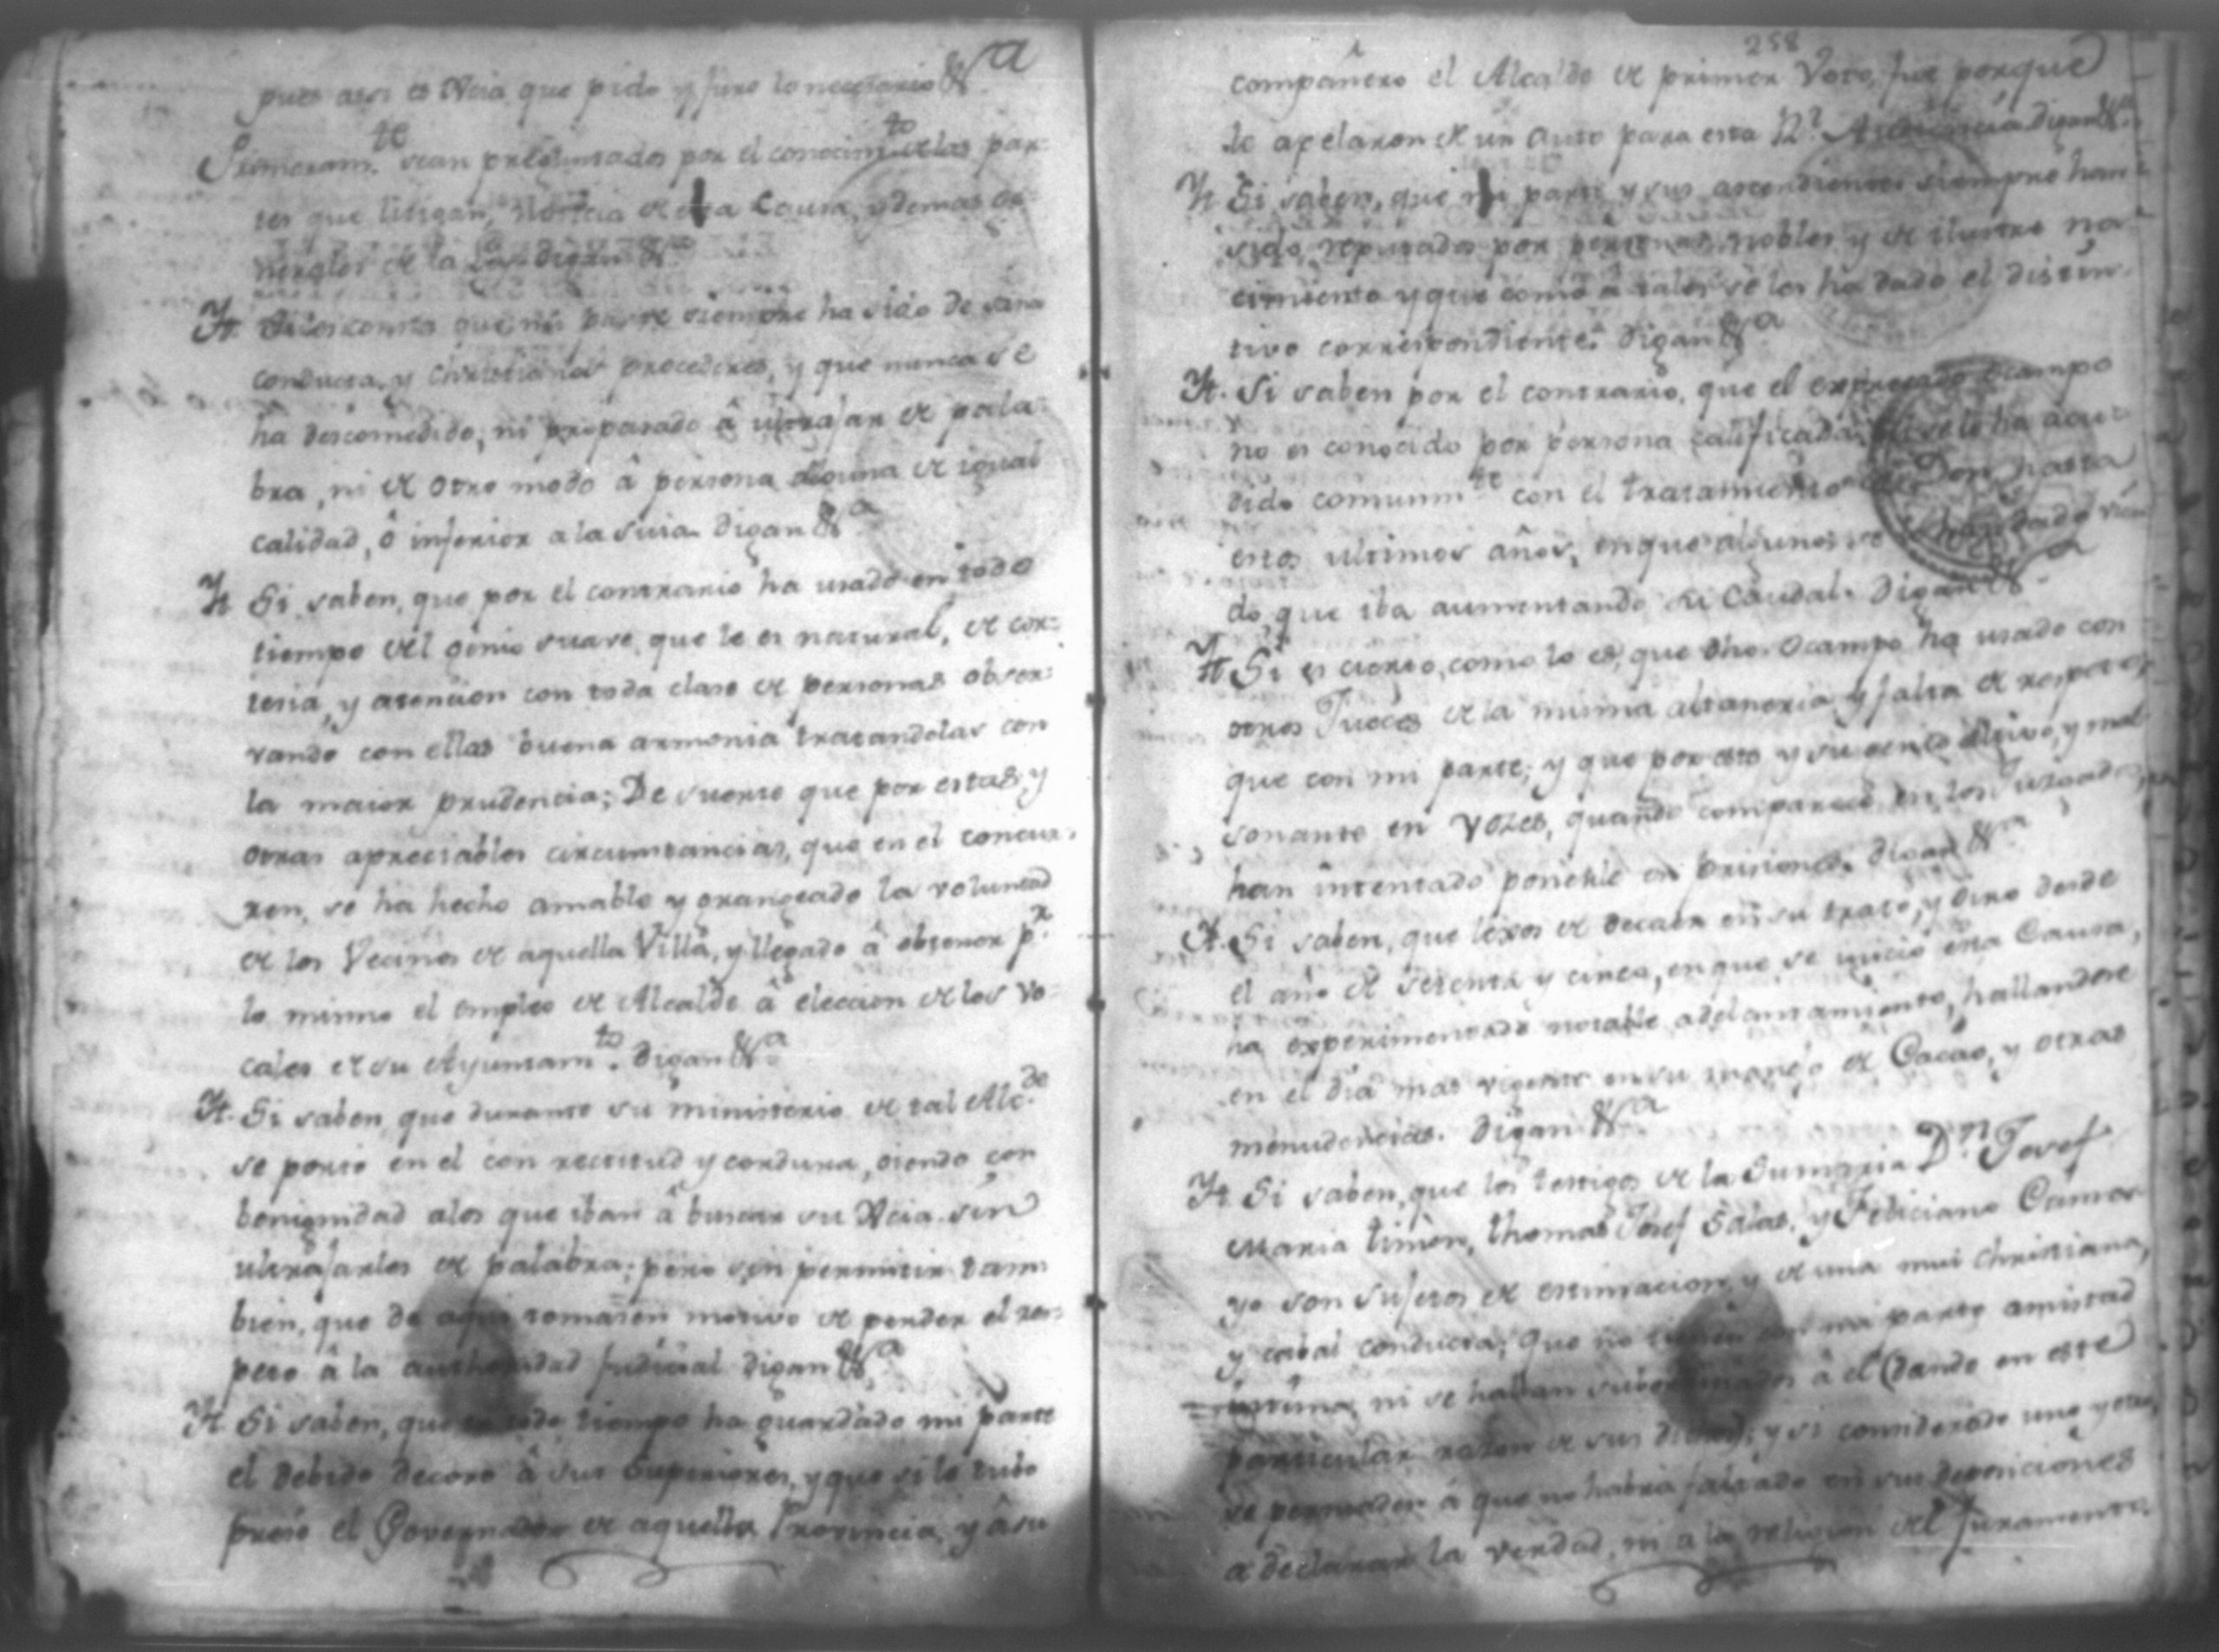 pues assi es Jticia que pido y juro lo necesario &a
Primeram.te sean preguntados por el conocim.to de las par-
tes que litigan, Noticia de esta Causa, y demas ge-
nerales de la Ley digan &a
Yt. Si les consta que mi parte siempre ha sido de sana
conducta, y christianos procederes, y que nunca se
ha descomedido, ni propasado â ultrajar de pala-
bra, ni de otro modo â persona alguna de igual
calidad, ô inferior a la suia. digan &a
Yt Si saben, que por el contrario ha usado en todo
tiempo del genio suave, que le es natural, de cor-
tesia, y atencion con toda clase de personas obser-
vando con ellas buena armonia tratandolas con
la maior prudencia; De suerte que por estas, y
otras apreciables circunstancias, que en el concur-
ren, se ha hecho amable y grangeado la voluntad
de los Vecinos de aquella Villa, y llegado â obtener p.r
lo mismo el empleo de Alcalde â eleccion de los Vo-
cales de su Ayuntam.to. digan &a
Yt. Si saben, que durante su ministerio de tal Alc.de
se porto en el con rectitud y cordura, oiendo con
benignidad a los que iban â buscar su Jticia sin
ultrajarlos de palabra; pero sin permitir tam
bien, que de aqui tomasen motivo de perder el res-
peto â la authoridad judicial digan &a
Yt. Si saben, que en todo tiempo ha guardado mi parte
el debido decoro â sus Superiores, y que si le tubo
preso el Governador de aquella Provincia, y â su
258
compañero el Alcalde de primer Voto, fue porque
le apelaron de un auto para esta R.l Audiencia digan &a
Yt Si saben, que mi parte y sus ascendientes siempre han
sido reputados por personas nobles y de ilustre na-
cimiento y que como â tales se les ha dado el distin-
tivo correspondiente. digan &a
Yt. Si saben por el contrario, que el expresado Ocampo
no es conocido por persona calificada, ni se le ha acu-
dido comunm.te con el tratamiento de Don, hasta
estos ultimos años, en que algunos se lo han dado vien
do, que iba aumentando su Caudal. Digan &a
Yt Si es cierto, como lo es, que dho. Ocampo ha usado con
otros Jueces de la misma altaneria y falta de respeto,
que con mi parte; y que por esto y su genio altivo, y mal
sonante en vozes, quando comparece en los Juzgados,
han intentado ponerle en prisiones. digan &a
Yt. Si saben, que lexos de decaer en su trato, y giro desde
el año de setenta y cinco, en que se inició esta Causa,
ha experimentado notable adelantamiento, hallandose
en el dia mas vigente en su manejo de Cacao, y otras
menudencias. digan &a
Yt Si saben, que los testigos de la Sumaria D.n Josef
Maria Timon, Thomas Josef Salas, y Feliciano Camar
go son sujetos de estimacion, y de una mui christiana,
y cabal conducta; Que no tienen con mi parte amistad
intima, ni se hallan subordinados â el (dando en este
particular razon de sus dichos); y si considerado uno y otro,
se persuaden â que no habrâ faltado en sus deposiciones
a declarar la verdad, ni a la religion del Juramento.